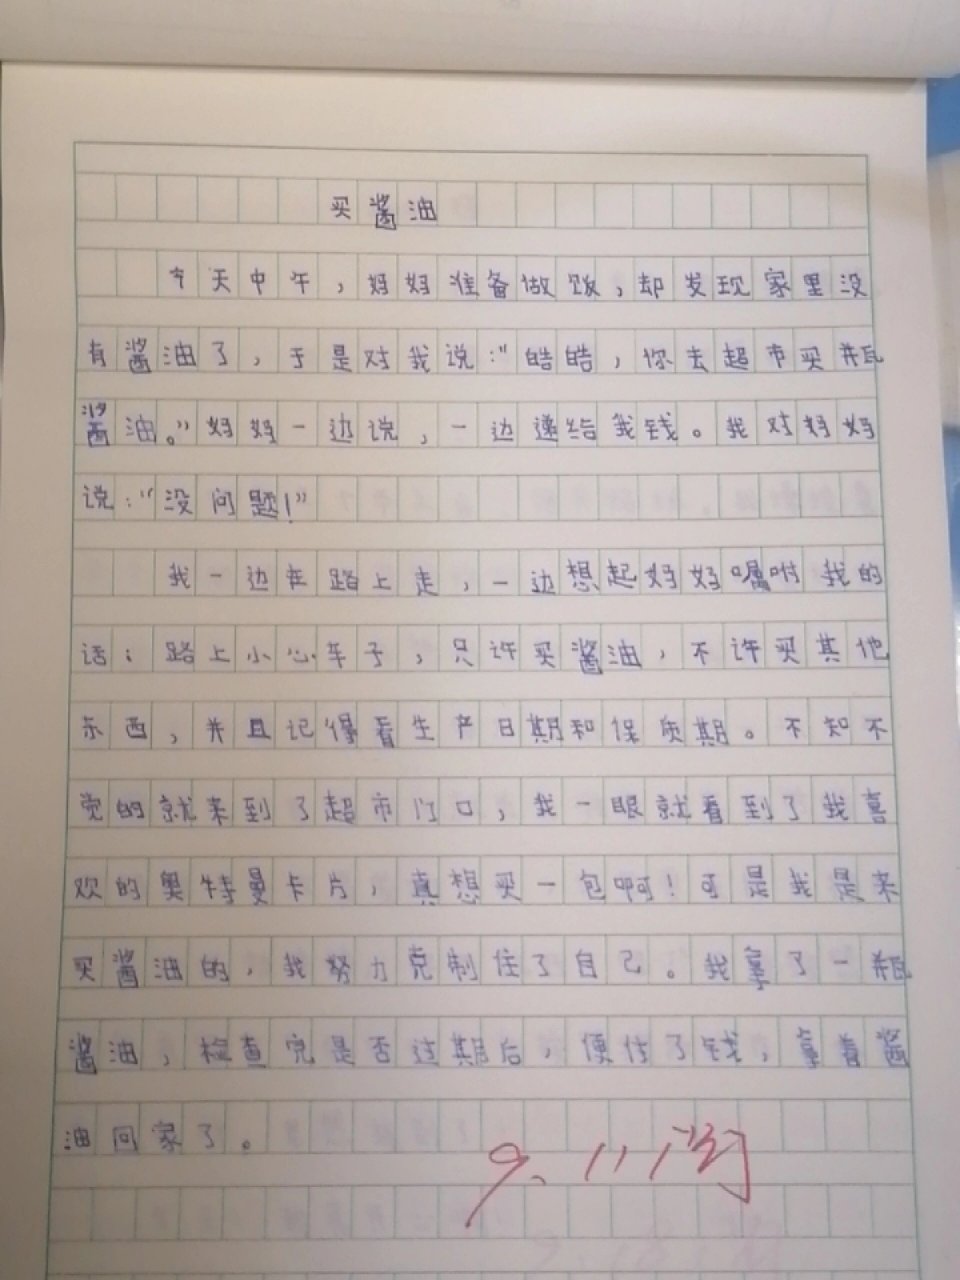 买酱油
今天中午，妈妈准备做饭，却发现家里没
有酱油了，于是对我说：“皓皓，你去超市买瓶
酱油。”妈妈一边说，一边递给我钱。我对妈妈
说：“没问题！”
我一边在路上走，一边想起妈妈嘱咐我的
话：路上小心车子，只许买酱油，不许买其他
东西，并且记得看生产日期和保质期。不知不
觉的就来到了超市门口，我一眼就看到了我喜
欢的奥特曼卡片，真想买一包啊！可是我是来
买酱油的，我努力克制住了自己。我拿了一瓶
酱油，检查完是否过期后，便付了钱，拿着酱
油回家了。
9.11